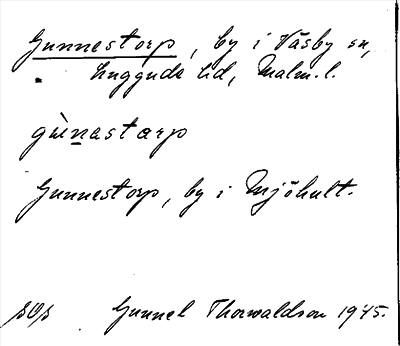 Gunnestorp, by i Väsby sn,
Luggude hd, Malm. l.
gù̀nastarp
Gunnestorp, by i Mjöhult.
Gunnel Thorwaldson 1945.